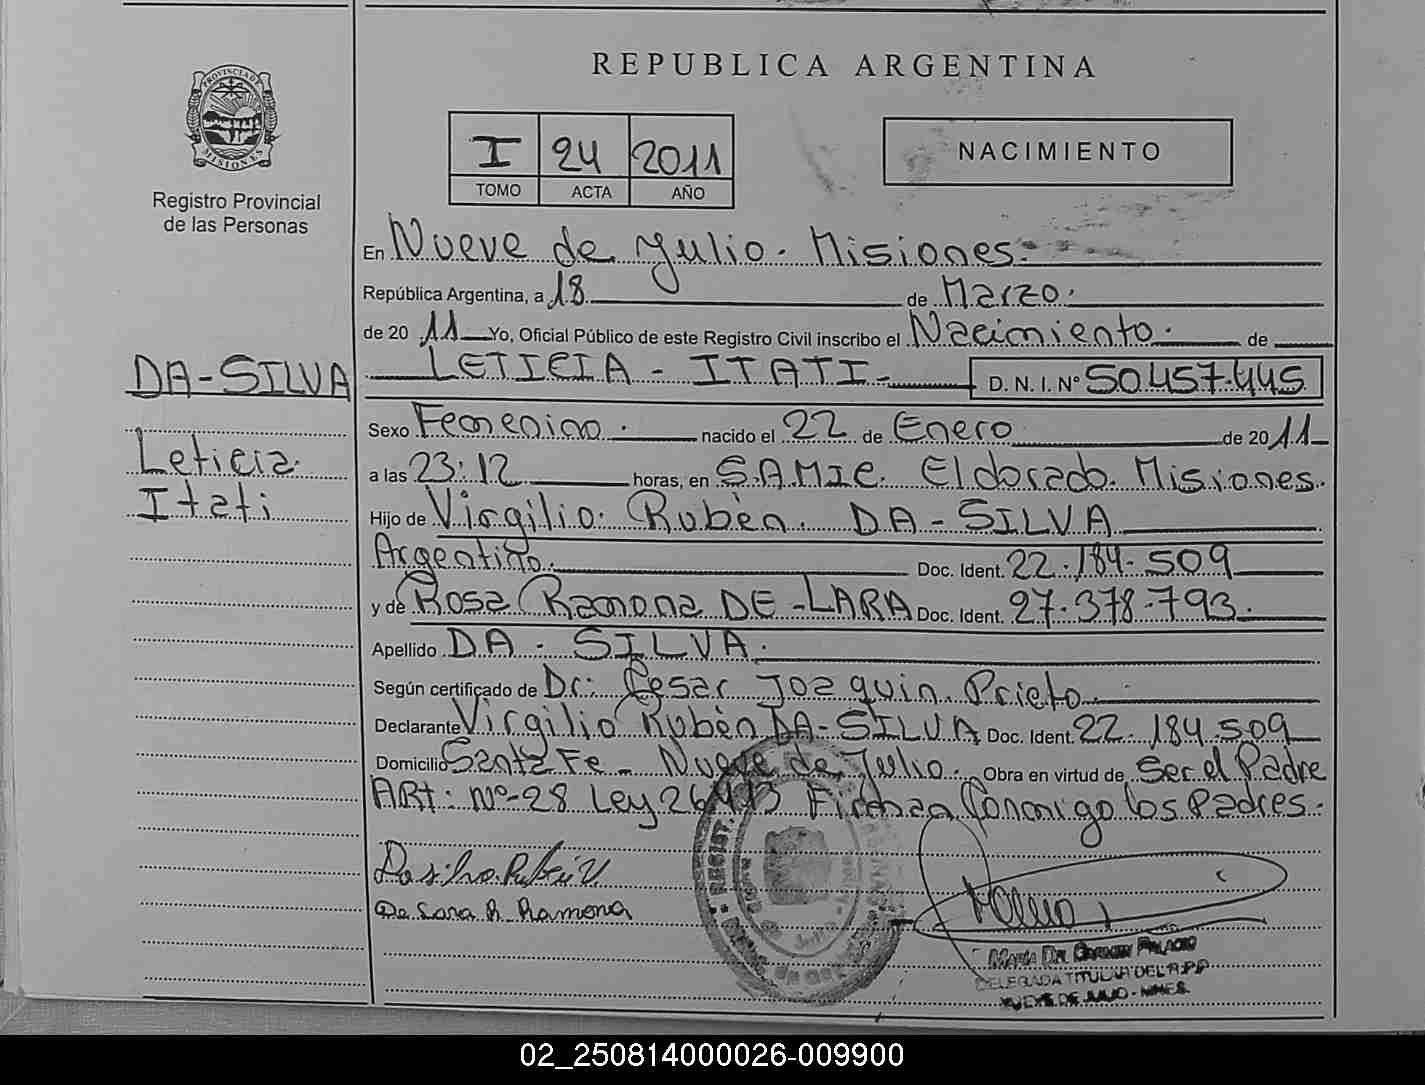 REPUBLICA ARGENTINA
PROVINCIA DE MISIONES
Registro Provincial
de las Personas
I 24 2011
TOMO ACTA AÑO
NACIMIENTO
En Nueve de Julio. Misiones.
República Argentina, a 18 de Marzo.
de 20 11 Yo, Oficial Público de este Registro Civil inscribo el Nacimiento. de
DA-SILVA
LETICIA - ITATI - D. N. I. Nº 50.457.445
Leticia
Itati
Sexo Femenino. nacido el 22 de Enero de 20 11
a las 23:12 horas, en S.A.M.I.C. Eldorado. Misiones.
Hijo de Virgilio. Rubèn. DA-SILVA
Argentino. Doc. Ident. 22.184.509
y de Rosa Ramona DE-LARA Doc. Ident. 27.378.793.
Apellido DA - SILVA.
Según certificado de Dr: Cesar Joaquin. Prieto
Declarante Virgilio Rubèn DA-SILVA Doc. Ident. 22.184.509
Domicilio Santa Fe - Nueve de Julio. Obra en virtud de Ser el Padre
ARt: Nº-28 Ley 26413 Firman Conmigo los Padres.
Da silva Rubén V
De Lara R. Ramona
MARIA DEL CARMEN PALACIO
DELEGADA TITULAR DEL R.P.P
NUEVE DE JULIO - MNES.
02_250814000026-009900